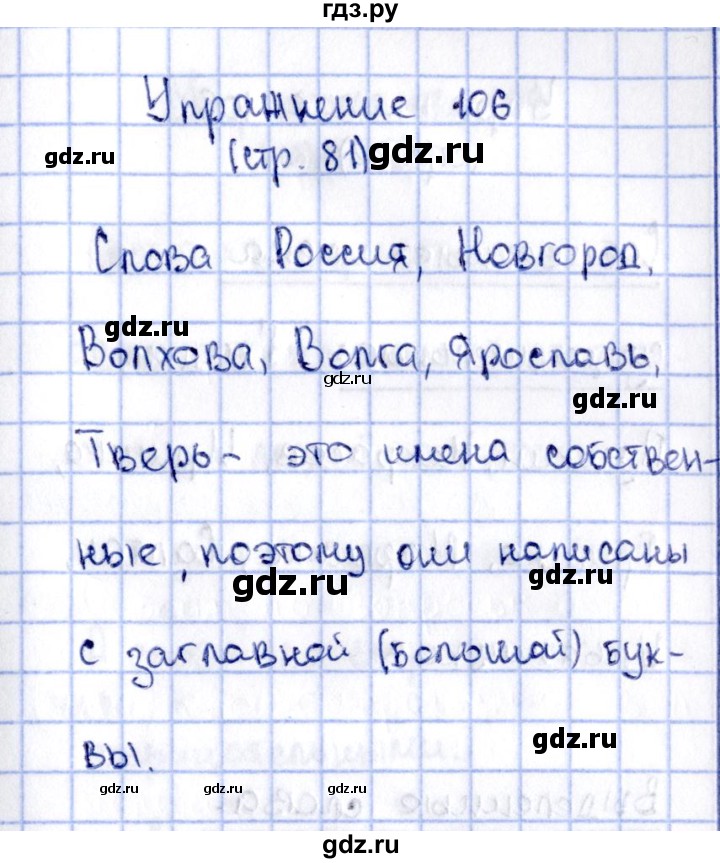 гдз.ру
Упражнение 106
gdz.ru
(стр. 81)
gdz.ru
Слова Россия, Новгород,
gdz.ru
Волхова, Волга, Ярославь,
gdz.ru
gdz.ru
Тверь - это имена собствен-
ные, поэтому они написаны
gdz.ru
gdz.ru
с заглавной (большой) бук-
gdz.ru
вы.
gdz.ru
gdz.ru
gdz.ru